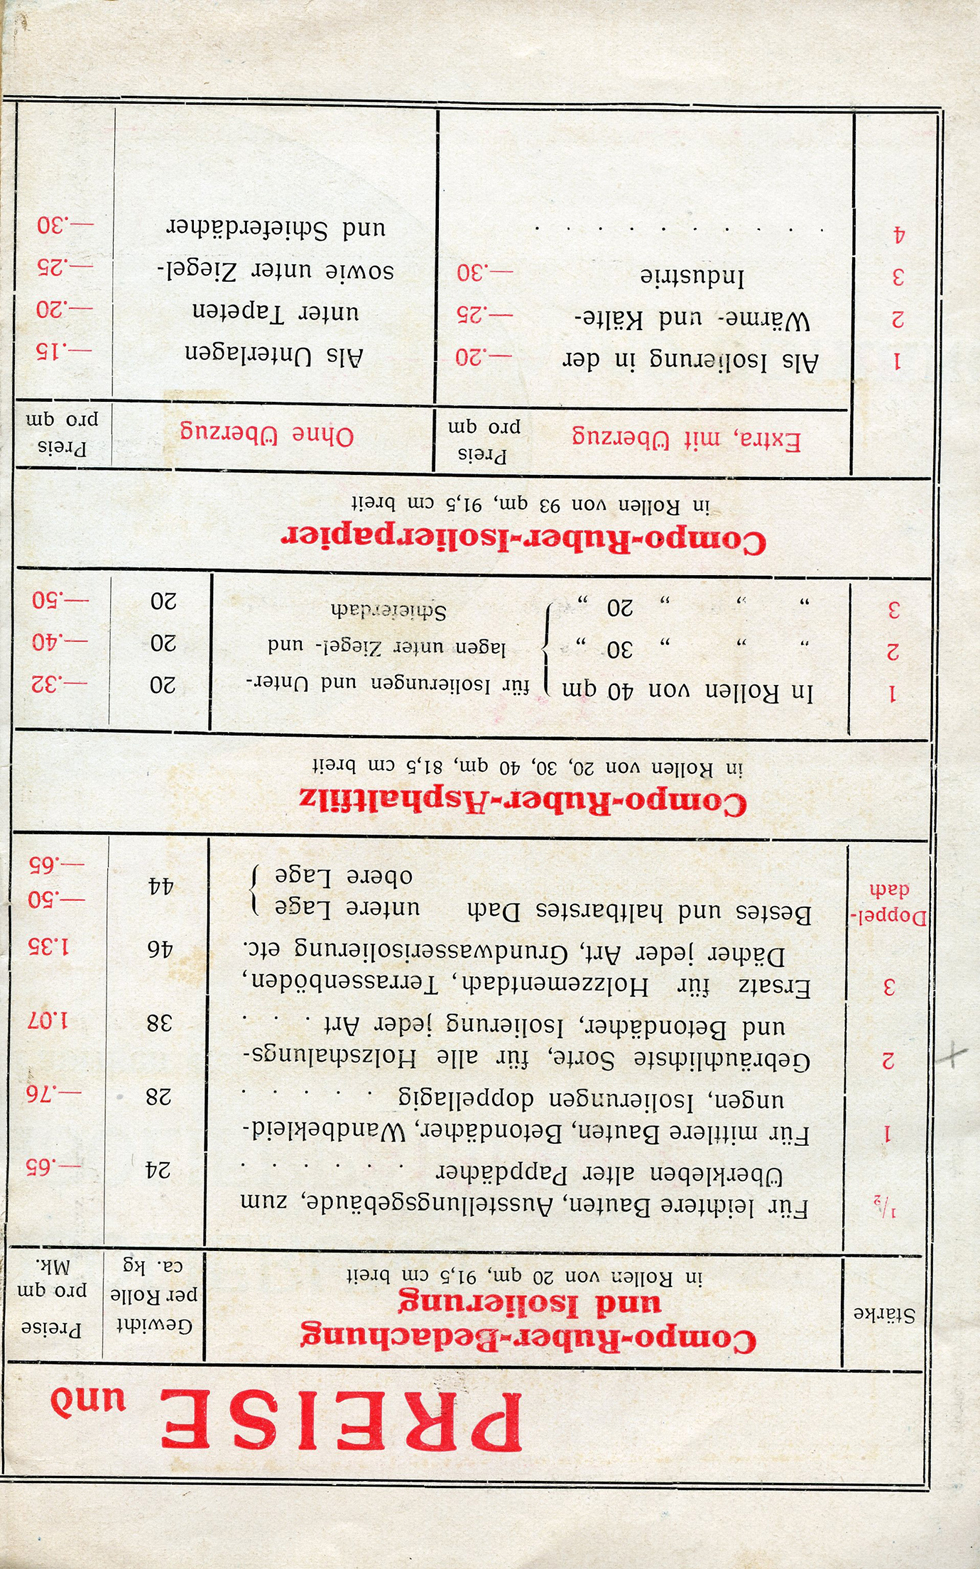 PREISE und
Stärke
Compo-Ruber-Bedachung
und Isolierung
in Rollen von 20 qm, 91,5 cm breit
Gewicht
per Rolle
ca. kg
Preise
pro qm
Mk.
1/2 Für leichtere Bauten, Ausstellungsgebäude, zum
Überkleben alter Pappdächer . . . . . . 24 —.65
1 Für mittlere Bauten, Betondächer, Wandbekleid-
ungen, Isolierungen doppellagig . . . . . 28 —.76
2 Gebräuchlichste Sorte, für alle Holzschalungs-
und Betondächer, Isolierung jeder Art . . . 38 1.07
3 Ersatz für Holzzementdach, Terrassenböden,
Dächer jeder Art, Grundwasserisolierung etc. 46 1.35
Doppel-
dach
Bestes und haltbarstes Dach { untere Lage
obere Lage } 44
—.50
—.65
Compo-Ruber-Asphaltfilz
in Rollen von 20, 30, 40 qm, 81,5 cm breit
1 In Rollen von 40 qm } für Isolierungen und Unter- 20 —.32
2 „ „ „ 30 „ } lagen unter Ziegel- und 20 —.40
3 „ „ „ 20 „ } Schieferdach 20 —.50
Compo-Ruber-Isolierpapier
in Rollen von 93 qm, 91,5 cm breit
Extra, mit Überzug
Preis
pro qm
Ohne Überzug
Preis
pro qm
1 Als Isolierung in der —.20 Als Unterlagen —.15
2 Wärme- und Kälte- —.25 unter Tapeten —.20
3 Industrie —.30 sowie unter Ziegel- —.25
4 . . . . . . . . . . und Schieferdächer —.30